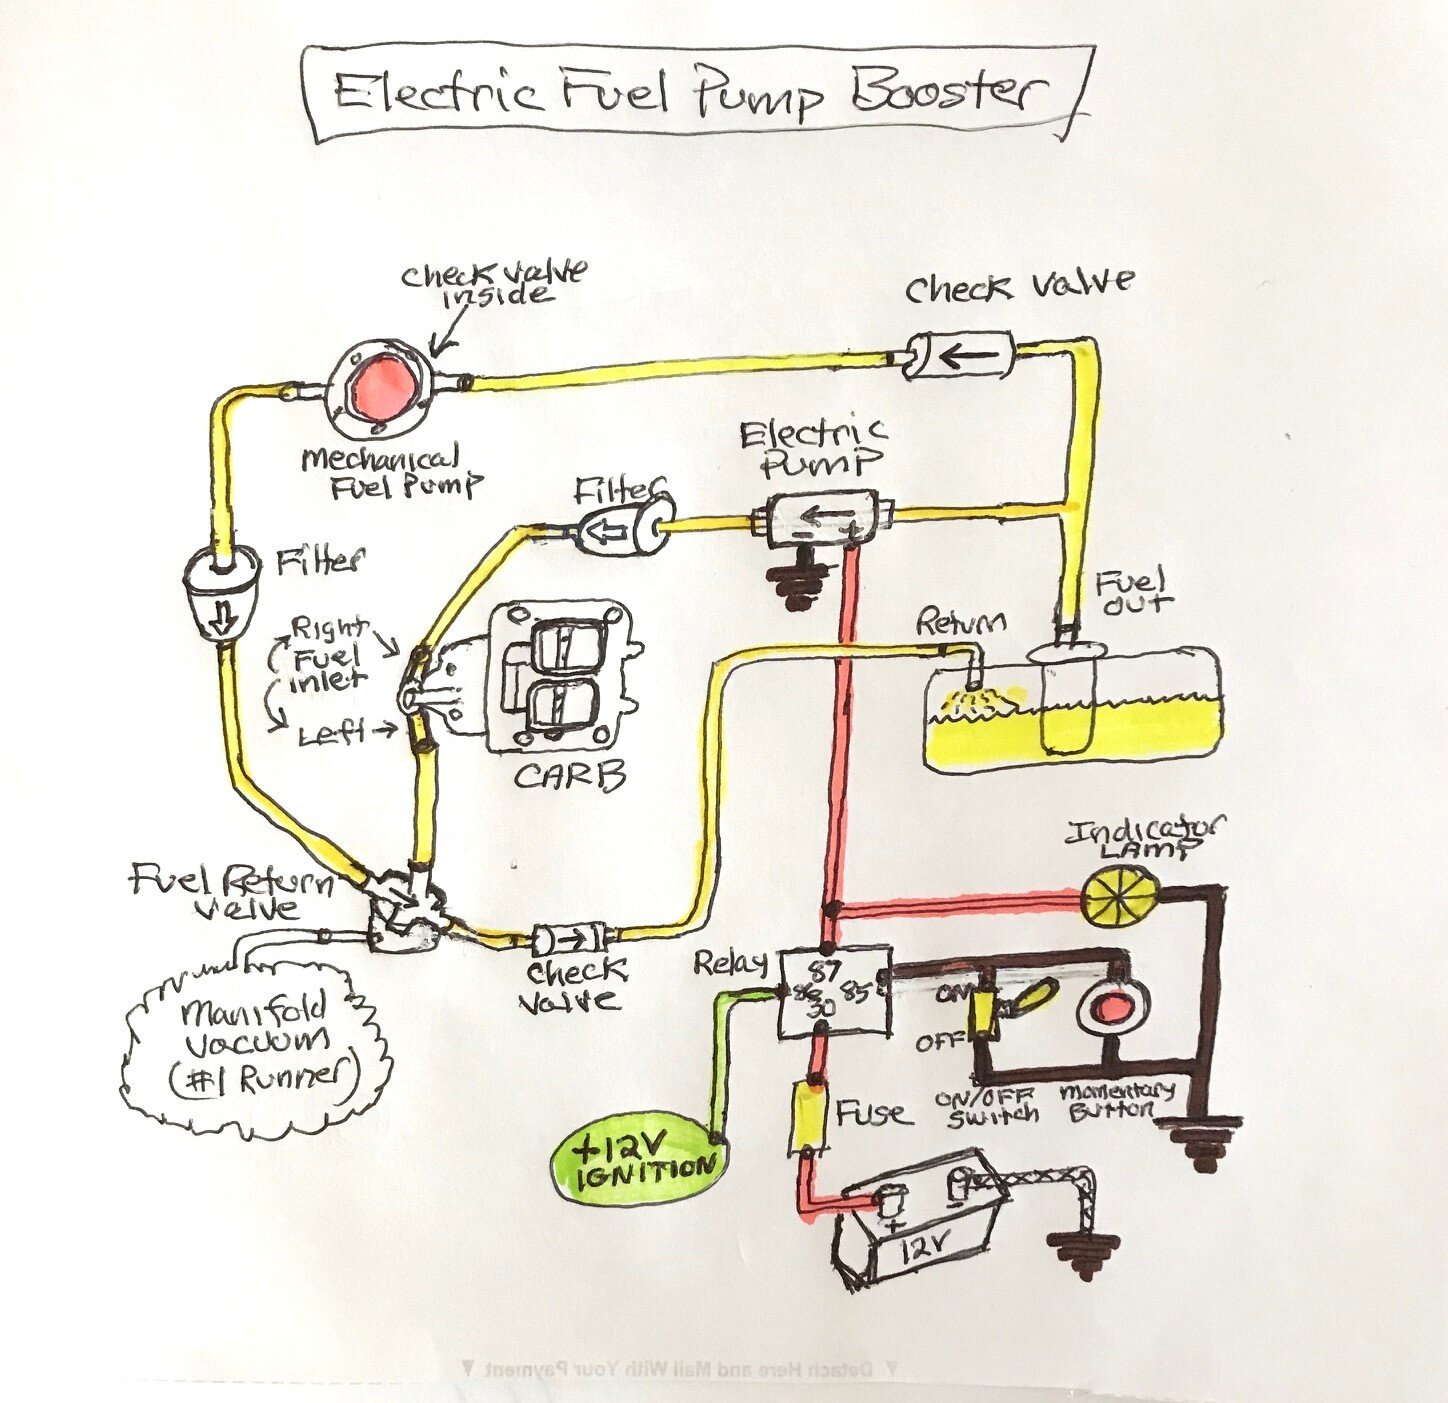 Electric Fuel Pump Booster
Check valve
inside
Check valve
Mechanical
Fuel Pump
Electric
Pump
Filter
Filter
Fuel
out
Return
Right
Fuel
inlet
Left
CARB
Indicator
LAMP
Fuel Return
Valve
Check
Valve
Relay
87
86 85
30
ON
OFF
Manifold
Vacuum
(#1 Runner)
ON/OFF
Switch
Momentary
Button
Fuse
+12V
IGNITION
+
-
12V
+
▼ Detach Here and Mail With Your Payment ▼